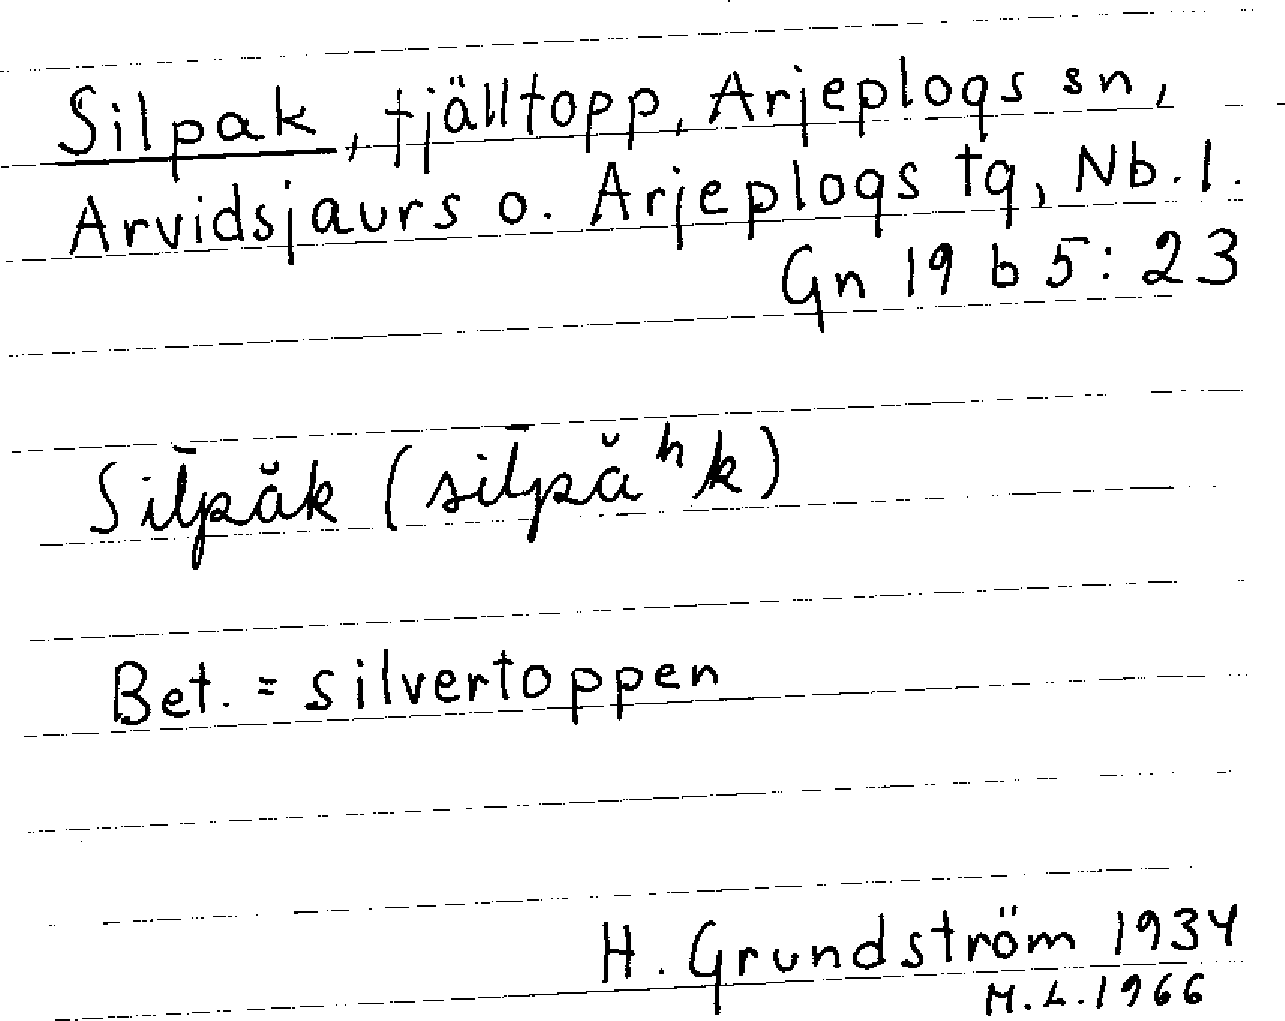 Silpak, fjälltopp, Arjeplogs sn,
Arvidsjaurs o. Arjeplogs tg, Nb. l.
Gn 19 b 5:23
Sil̄păk (sil̄păʰk)
Bet. = silvertoppen
H. Grundström 1934
M.L. 1966